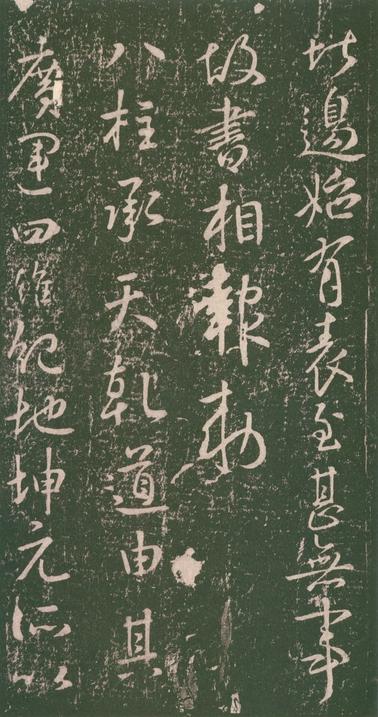 此邊始有表至甚無事
故書相報敕
八柱承天乾道由其
廣運四維紀地坤元所以